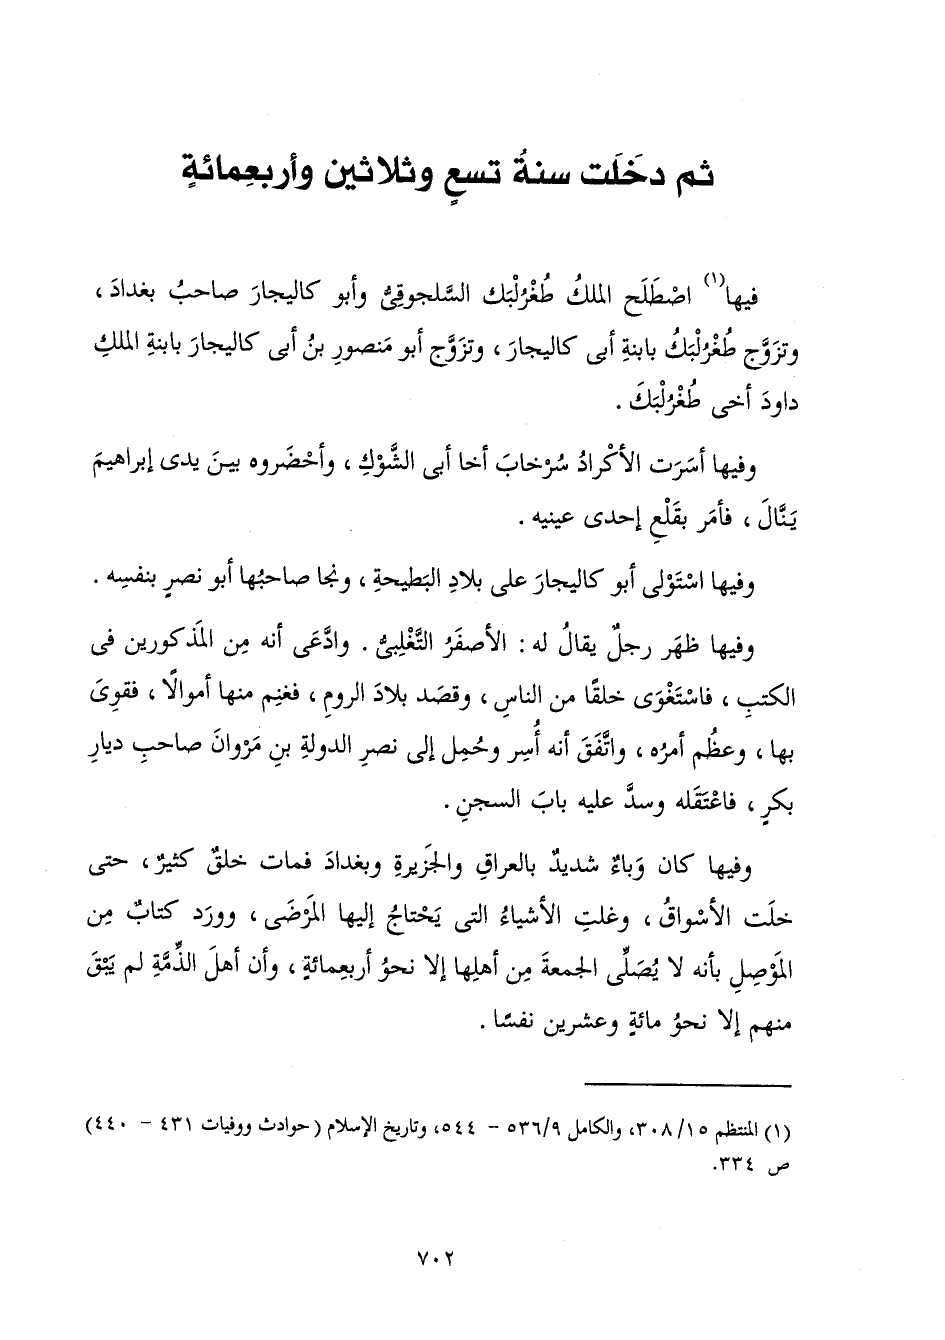 ثم دخَلَت سنةُ تسعٍ وثلاثين وأربعِمائةٍ
فيها(١) اصْطَلَح الملكُ طُغْرُلْبَك السَّلجوقىُّ وأبو كاليجارَ صاحبُ بغدادَ ،
وتزَوَّج طُغْرُلْبَكُ بابنةِ أبى كاليجارَ ، وتزَوَّج أبو مَنصورِ بنُ أبى كاليجارَ بابنةِ الملكِ
داودَ أخى طُغْرُلْبَكَ .
وفيها أسَرَت الأكْرادُ سُرْخابَ أخا أبى الشَّوْكِ ، وأحْضَروه بينَ يدى إبراهيمَ
يَنَّالَ ، فأمَر بقَلْعِ إحدى عينيه .
وفيها اسْتَوْلى أبو كاليجارَ على بلادِ البَطيحةِ ، ونجا صاحبُها أبو نصرٍ بنفسِه .
وفيها ظهَر رجلٌ يقالُ له : الأصفَرُ التَّغْلِبىُّ . وادَّعَى أنه مِن المَذكورين فى
الكتبِ ، فاسْتَغْوَى خلقًا من الناسِ ، وقصَد بلادَ الرومِ ، فغنِم منها أموالًا ، فقوِىَ
بها ، وعظُم أمرُه ، واتَّفَقَ أنه أُسِر وحُمِل إلى نصرِ الدولةِ بنِ مَرْوانَ صاحبِ ديارِ
بكرٍ ، فاعْتَقَله وسدَّ عليه بابَ السجنِ .
وفيها كان وَباءٌ شديدٌ بالعراقِ والجَزيرةِ وبغدادَ فمات خلقٌ كثيرٌ ، حتى
خلَت الأسْواقُ ، وغلتِ الأشياءُ التى يَحْتاجُ إليها المَرْضَى ، وورَد كتابٌ مِن
المَوْصِلِ بأنه لا يُصَلِّى الجمعةَ مِن أهلِها إلا نحوُ أربعِمائةٍ ، وأن أهلَ الذِّمَّةِ لم يَبْقَ
منهم إلا نحوُ مائةٍ وعشرين نفسًا .
(١) المنتظم ٣٠٨/١٥، والكامل ٥٣٦/٩ - ٥٤٤، وتاريخ الإسلام (حوادث ووفيات ٤٣١ - ٤٤٠)
ص ٣٣٤.
٧٠٢